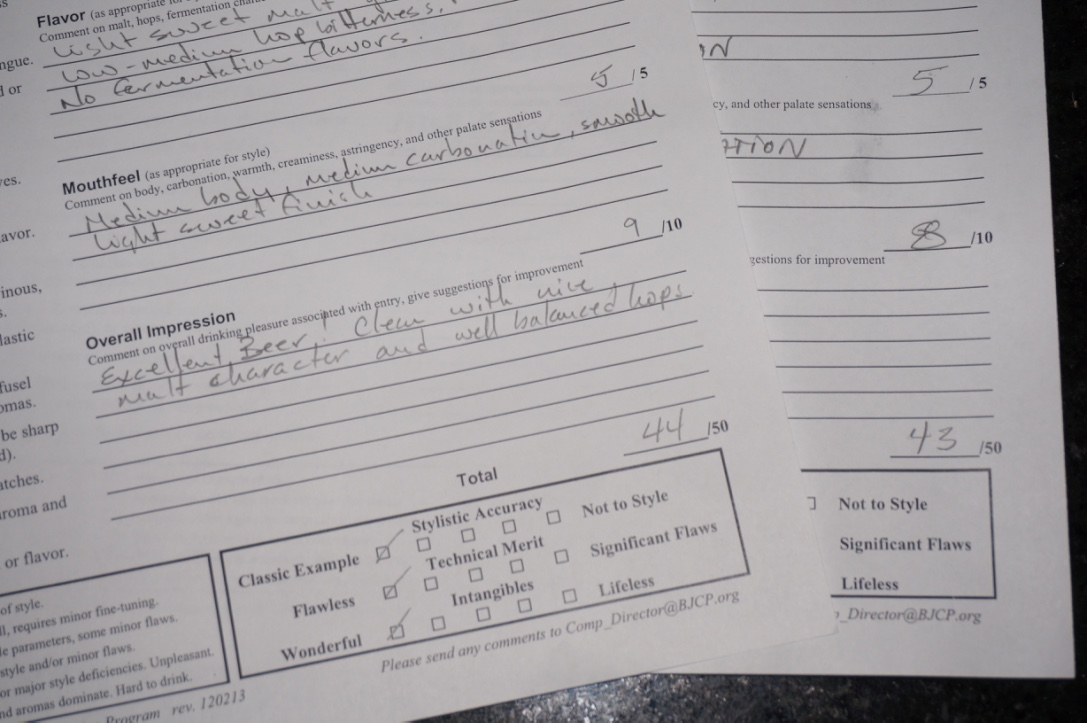 Flavor (as appropriate for
Comment on malt, hops, fermentation
Light sweet malt
low-medium hop bitterness.
No fermentation flavors.
ngue.
or
5 /5
Mouthfeel (as appropriate for style)
Comment on body, carbonation, warmth, creaminess, astringency, and other palate sensations
Medium body, medium carbonation, smooth
light sweet finish
avor.
9 /10
inous,
lastic
Overall Impression
Comment on overall drinking pleasure associated with entry, give suggestions for improvement
Excellent Beer! Clean with nice
malt character and well balanced hops
fusel
omas.
be sharp
d).
atches.
roma and
or flavor.
Total 44 /50
Stylistic Accuracy
Classic Example Not to Style
Technical Merit
Flawless Significant Flaws
Intangibles
Wonderful Lifeless
Please send any comments to Comp_Director@BJCP.org
of style.
ll, requires minor fine-tuning.
le parameters, some minor flaws.
style and/or minor flaws.
or major style deficiencies. Unpleasant.
nd aromas dominate. Hard to drink.
Program rev. 120213
ON
5 /5
cy, and other palate sensations
TION
8 /10
gestions for improvement
43 /50
Not to Style
Significant Flaws
Lifeless
p_Director@BJCP.org